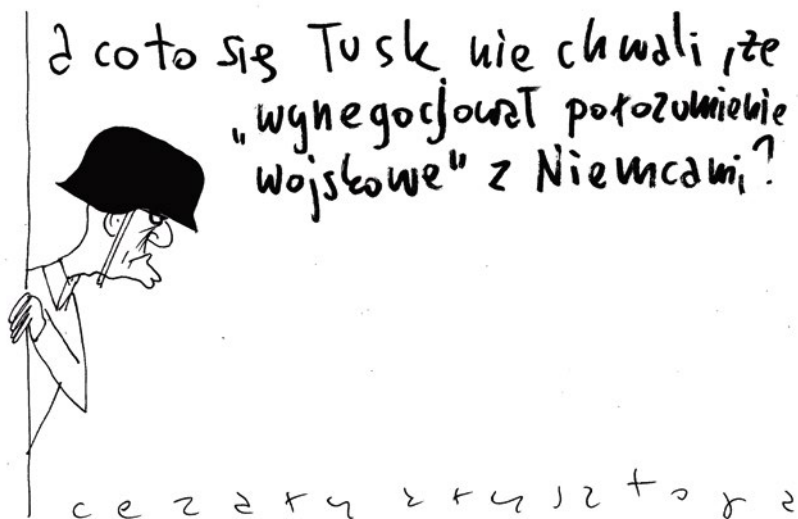 a co to się Tusk nie chwali, że
"wynegocjował porozumienie
wojskowe" z Niemcami?
cezary krysztopa